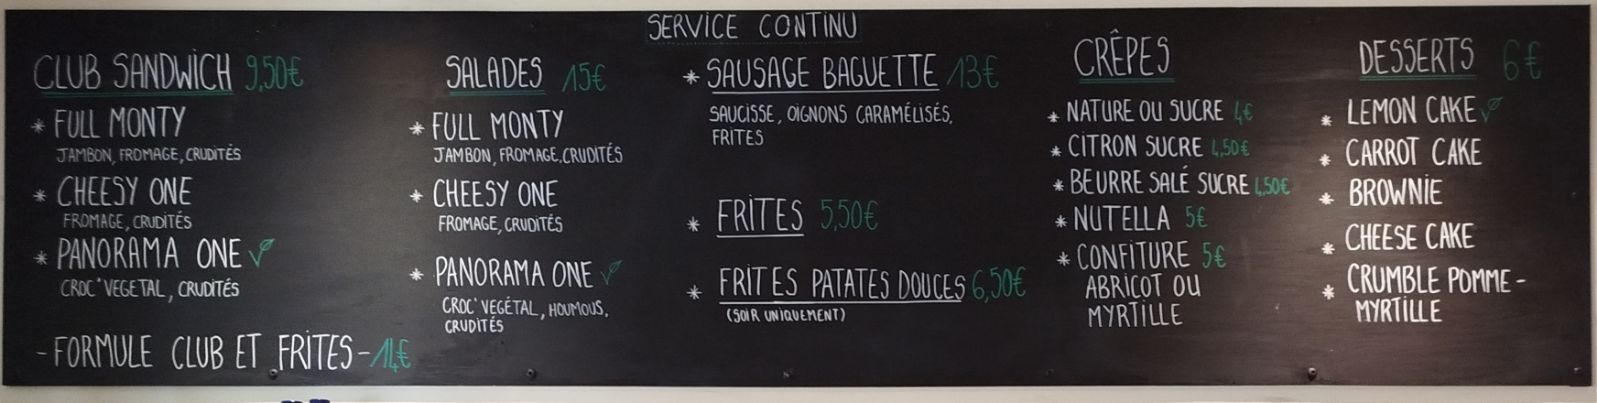 SERVICE CONTINU
CLUB SANDWICH 9,50€
* FULL MONTY
JAMBON, FROMAGE, CRUDITÉS
* CHEESY ONE
FROMAGE, CRUDITÉS
* PANORAMA ONE
CROC'VEGETAL, CRUDITÉS
- FORMULE CLUB ET FRITES - 14€
SALADES 15€
* FULL MONTY
JAMBON, FROMAGE, CRUDITÉS
* CHEESY ONE
FROMAGE, CRUDITÉS
* PANORAMA ONE
CROC'VEGÉTAL, HOUMOUS,
CRUDITÉS
* SAUSAGE BAGUETTE 13€
SAUCISSE, OIGNONS CARAMÉLISÉS,
FRITES
* FRITES 5,50€
* FRITES PATATES DOUCES 6,50€
(SOIR UNIQUEMENT)
CRÊPES
* NATURE OU SUCRE 4€
* CITRON SUCRE 4,50€
* BEURRE SALÉ SUCRE 4,50€
* NUTELLA 5€
* CONFITURE 5€
ABRICOT OU
MYRTILLE
DESSERTS 6€
* LEMON CAKE
* CARROT CAKE
* BROWNIE
* CHEESE CAKE
* CRUMBLE POMME -
MYRTILLE